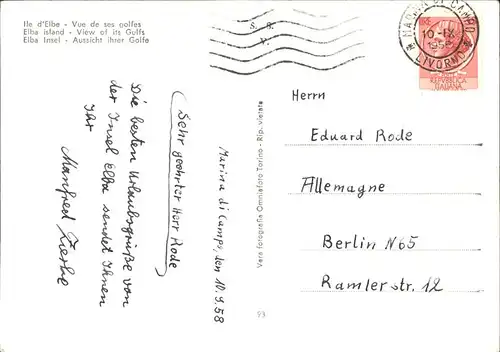 Ile d'Elbe - Vue de ses golfes
Elba island - View of its Gulfs
Elba Insel - Aussicht ihrer Golfe
Marina di Campo, den 10.9.58
Sehr geehrter Herr Rode
Die besten Urlaubsgrüße von
der Insel Elba sendet Ihnen
Ihr
Manfred
Vera fotografia Omniafoto Torino - Rip. vietata
93
MARINA DI CAMPO
10-IX
1958
LIVORNO
REPVBBLICA
ITALIANA
Herrn
Eduard Rode
Allemagne
Berlin N65
Ramlerstr. 12